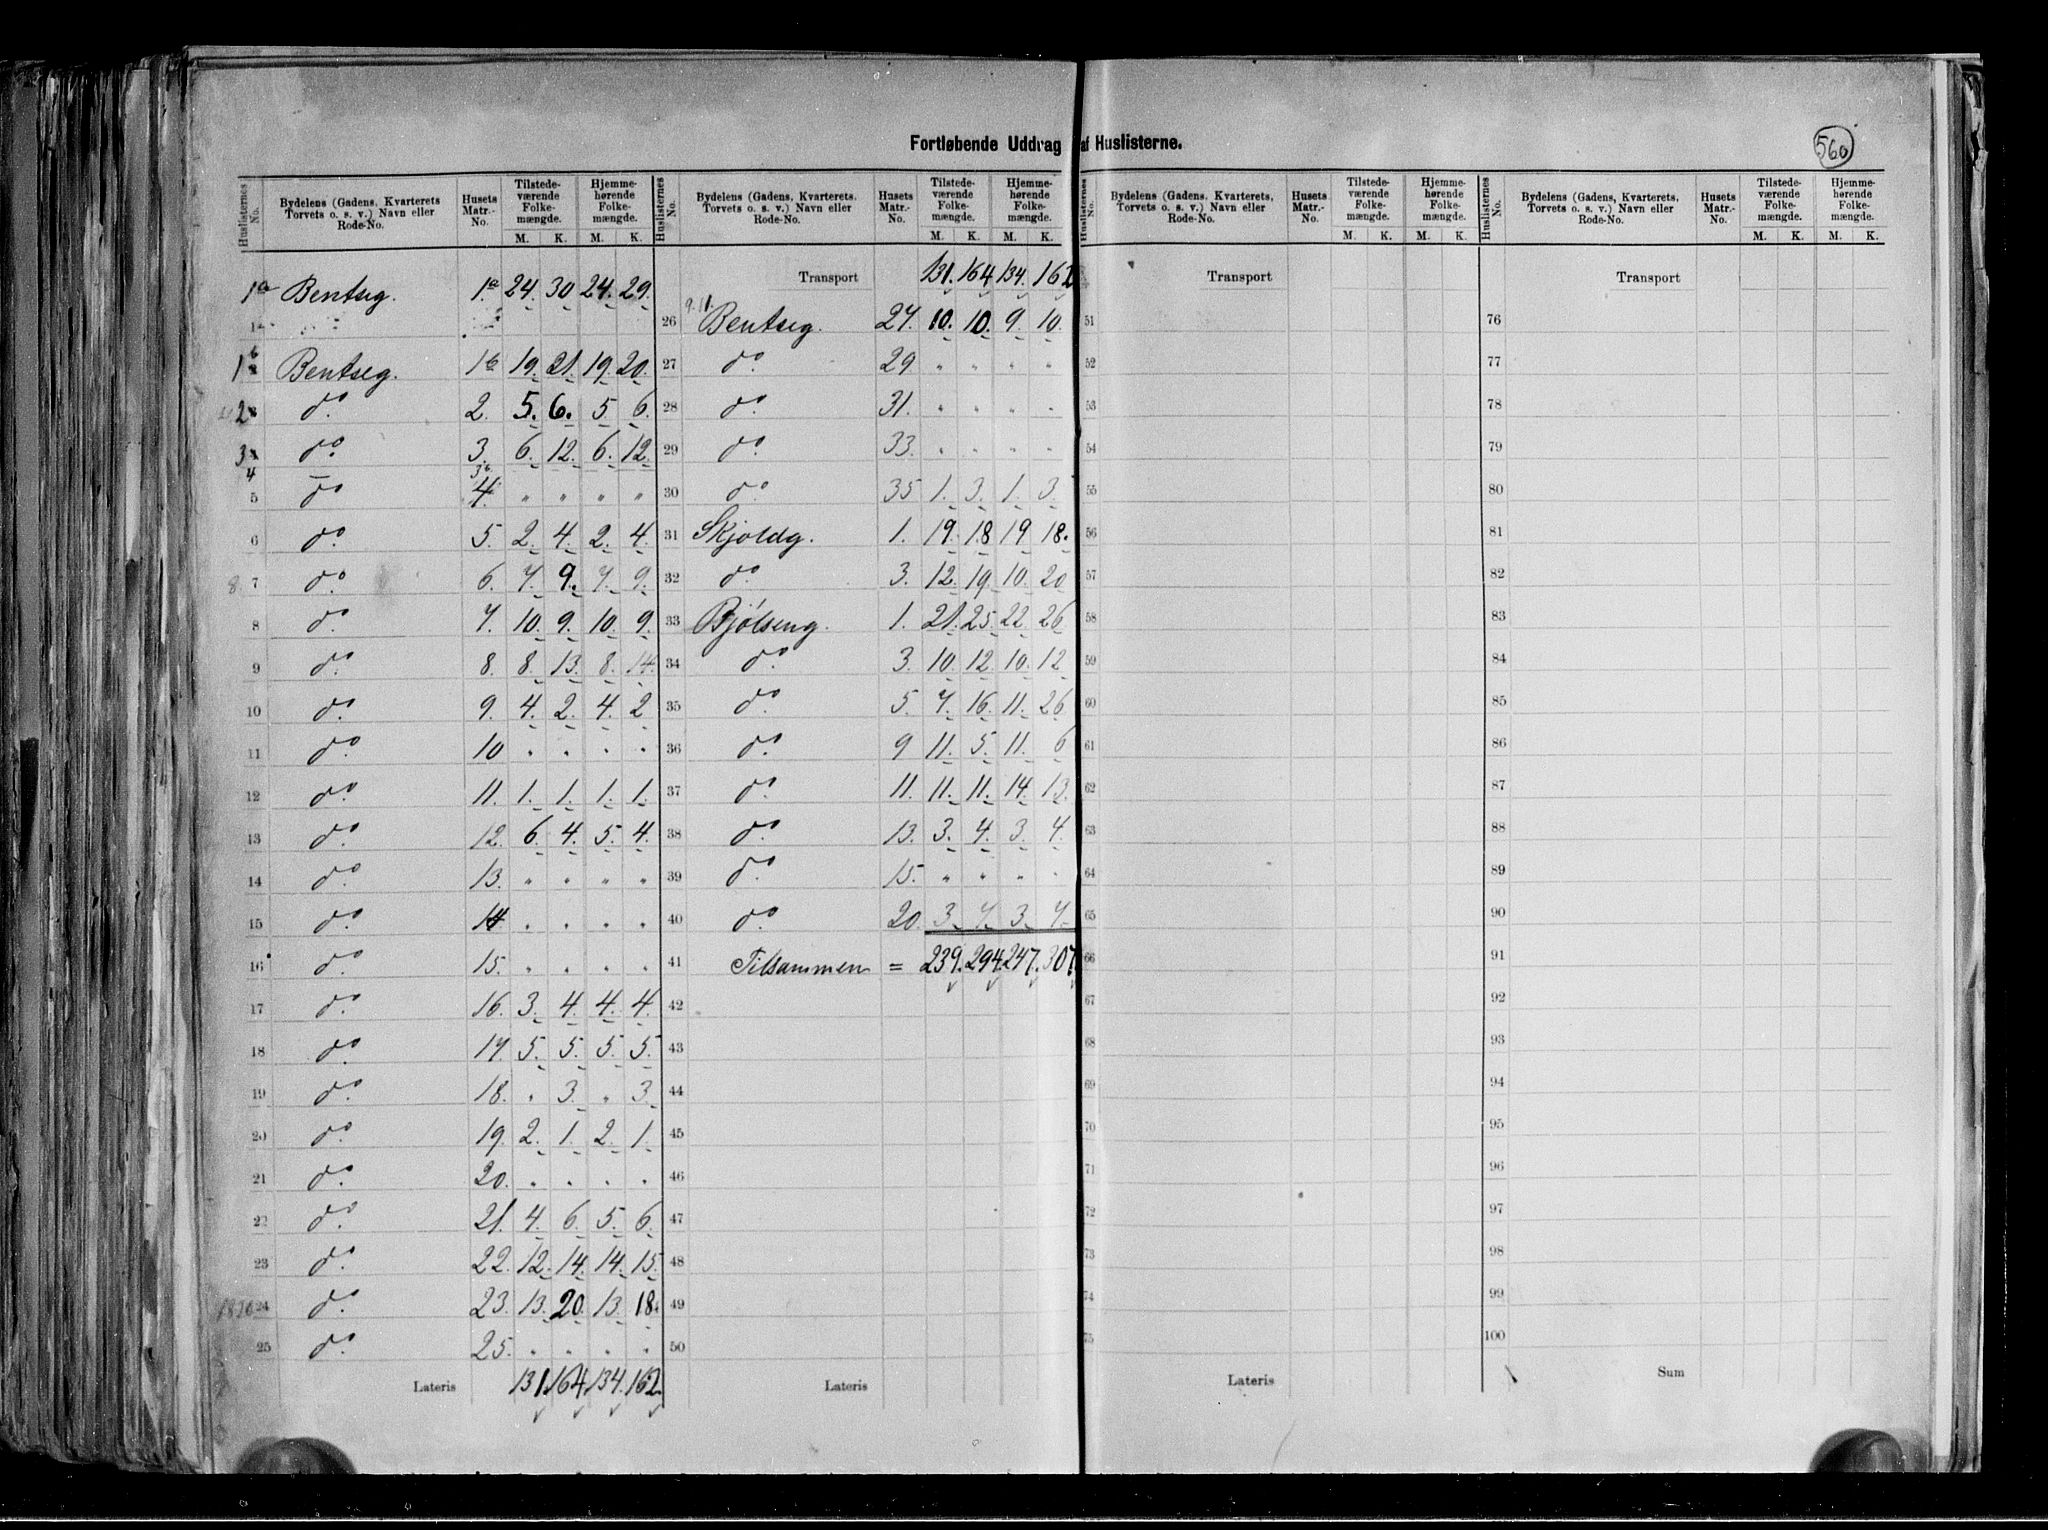 Fortløbende Uddrag af Huslisterne.
560
Huslisternes No. Bydelens (Gadens, Kvarterets, Torvets o. s. v.) Navn eller Rode-No. Husets Matr.-No. Tilstedeværende Folkemængde. M. K. Hjemmehørende Folkemængde. M. K.
1a Bentseg. 1.a 24. 30 24. 29.
1b Bentseg. 1b 19. 21. 19. 20.
2 do 2. 5. 6. 5 6.
3 do 3. 6. 12. 6. 12.
4 3b
5 do 4. " " " "
6 do 5. 2. 4. 2. 4.
7 do 6. 7. 9. 7. 9.
8 do 7. 10. 9. 10. 9.
9 do 8. 8. 13. 8. 14.
10 do 9. 4. 2. 4. 2
11 do 10 " " " "
12 do 11. 1. 1. 1. 1.
13 do 12. 6. 4. 5. 4.
14 do 13. " " " "
15 do 14 " " " "
16 do 15. " " " "
17 do 16. 3. 4. 4. 4.
18 do 17. 5. 5. 5. 5.
19 do 18. " 3. " 3.
20 do 19. 2. 1. 2. 1.
21 do 20. " " " "
22 do 21. 4. 6. 5. 6.
23 do 22. 12. 14. 14. 15.
24 do 23. 13. 20. 13. 18.
25 do 25. " " " "
Lateris 131. 164. 134. 162.
Huslisternes No. Bydelens (Gadens, Kvarterets, Torvets o. s. v.) Navn eller Rode-No. Husets Matr.-No. Tilstedeværende Folkemængde. M. K. Hjemmehørende Folkemængde. M. K.
Transport 131. 164. 134. 162
26 Bentseg. 27. 10. 10. 9. 10.
27 do 29 " " " "
28 do 31. " " " "
29 do 33. " " " "
30 do 35 1. 3. 1. 3.
31 Skjoldg. 1. 19. 18 19 18.
32 do 3. 12. 19. 10. 20
33 Bjølseng. 1. 21. 25. 22. 26
34 do 3. 10. 12. 10. 12
35 do 5. 7. 16. 11. 26
36 do 9 11. 5. 11. 6
37 do 11. 11. 11. 14. 13.
38 do 13. 3. 4. 3. 4.
39 do 15. " " " "
40 do 20. 3. 7. 3. 7.
41 Tilsammen = 239. 294. 247. 307.
42
43
44
45
46
47
48
49
50
Lateris
Huslisternes No. Bydelens (Gadens, Kvarterets, Torvets o. s. v.) Navn eller Rode-No. Husets Matr.-No. Tilstedeværende Folkemængde. M. K. Hjemmehørende Folkemængde. M. K.
Transport
51
52
53
54
55
56
57
58
59
60
61
62
63
64
65
66
67
68
69
70
71
72
73
74
75
Lateris
Huslisternes No. Bydelens (Gadens, Kvarterets, Torvets o. s. v.) Navn eller Rode-No. Husets Matr.-No. Tilstedeværende Folkemængde. M. K. Hjemmehørende Folkemængde. M. K.
Transport
76
77
78
79
80
81
82
83
84
85
86
87
88
89
90
91
92
93
94
95
96
97
98
99
100
Sum